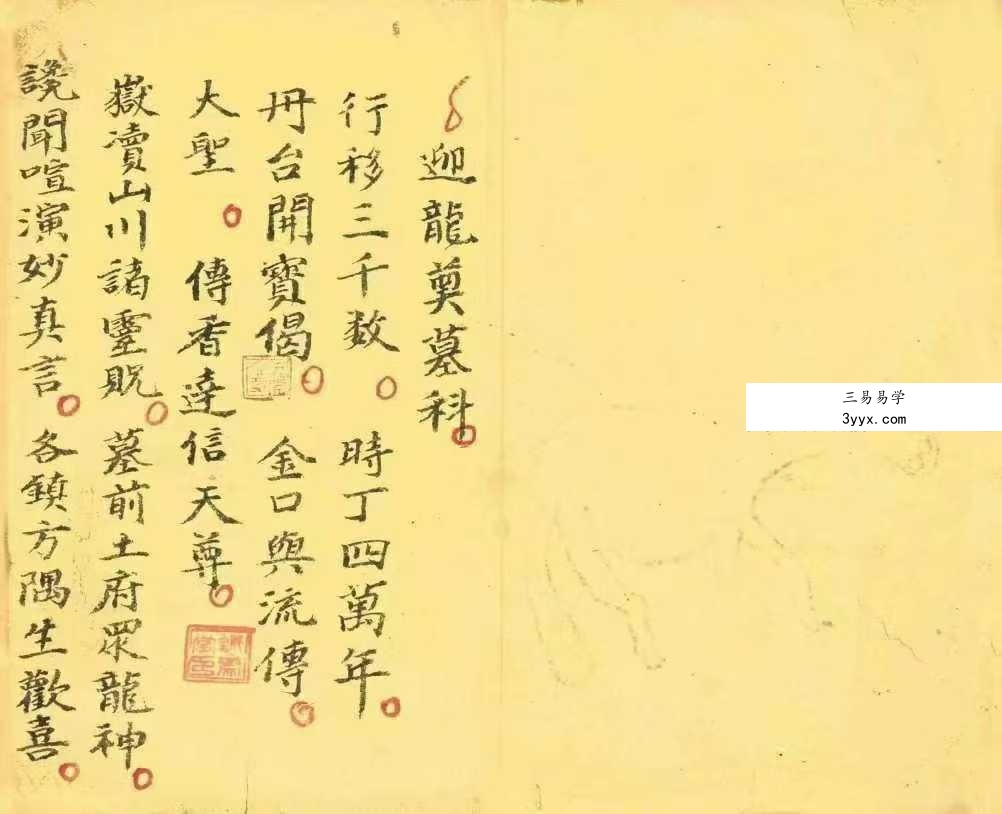 迎龍奠墓科
行移三千数 時丁四萬年
丹台開寳偈 金口與流傳
大聖 傳香達信天尊
嶽瀆山川諸靈貺 墓前土府眾龍神
讒聞喧演妙真言 各鎮方隅生歡喜
三易易学
3yyx.com